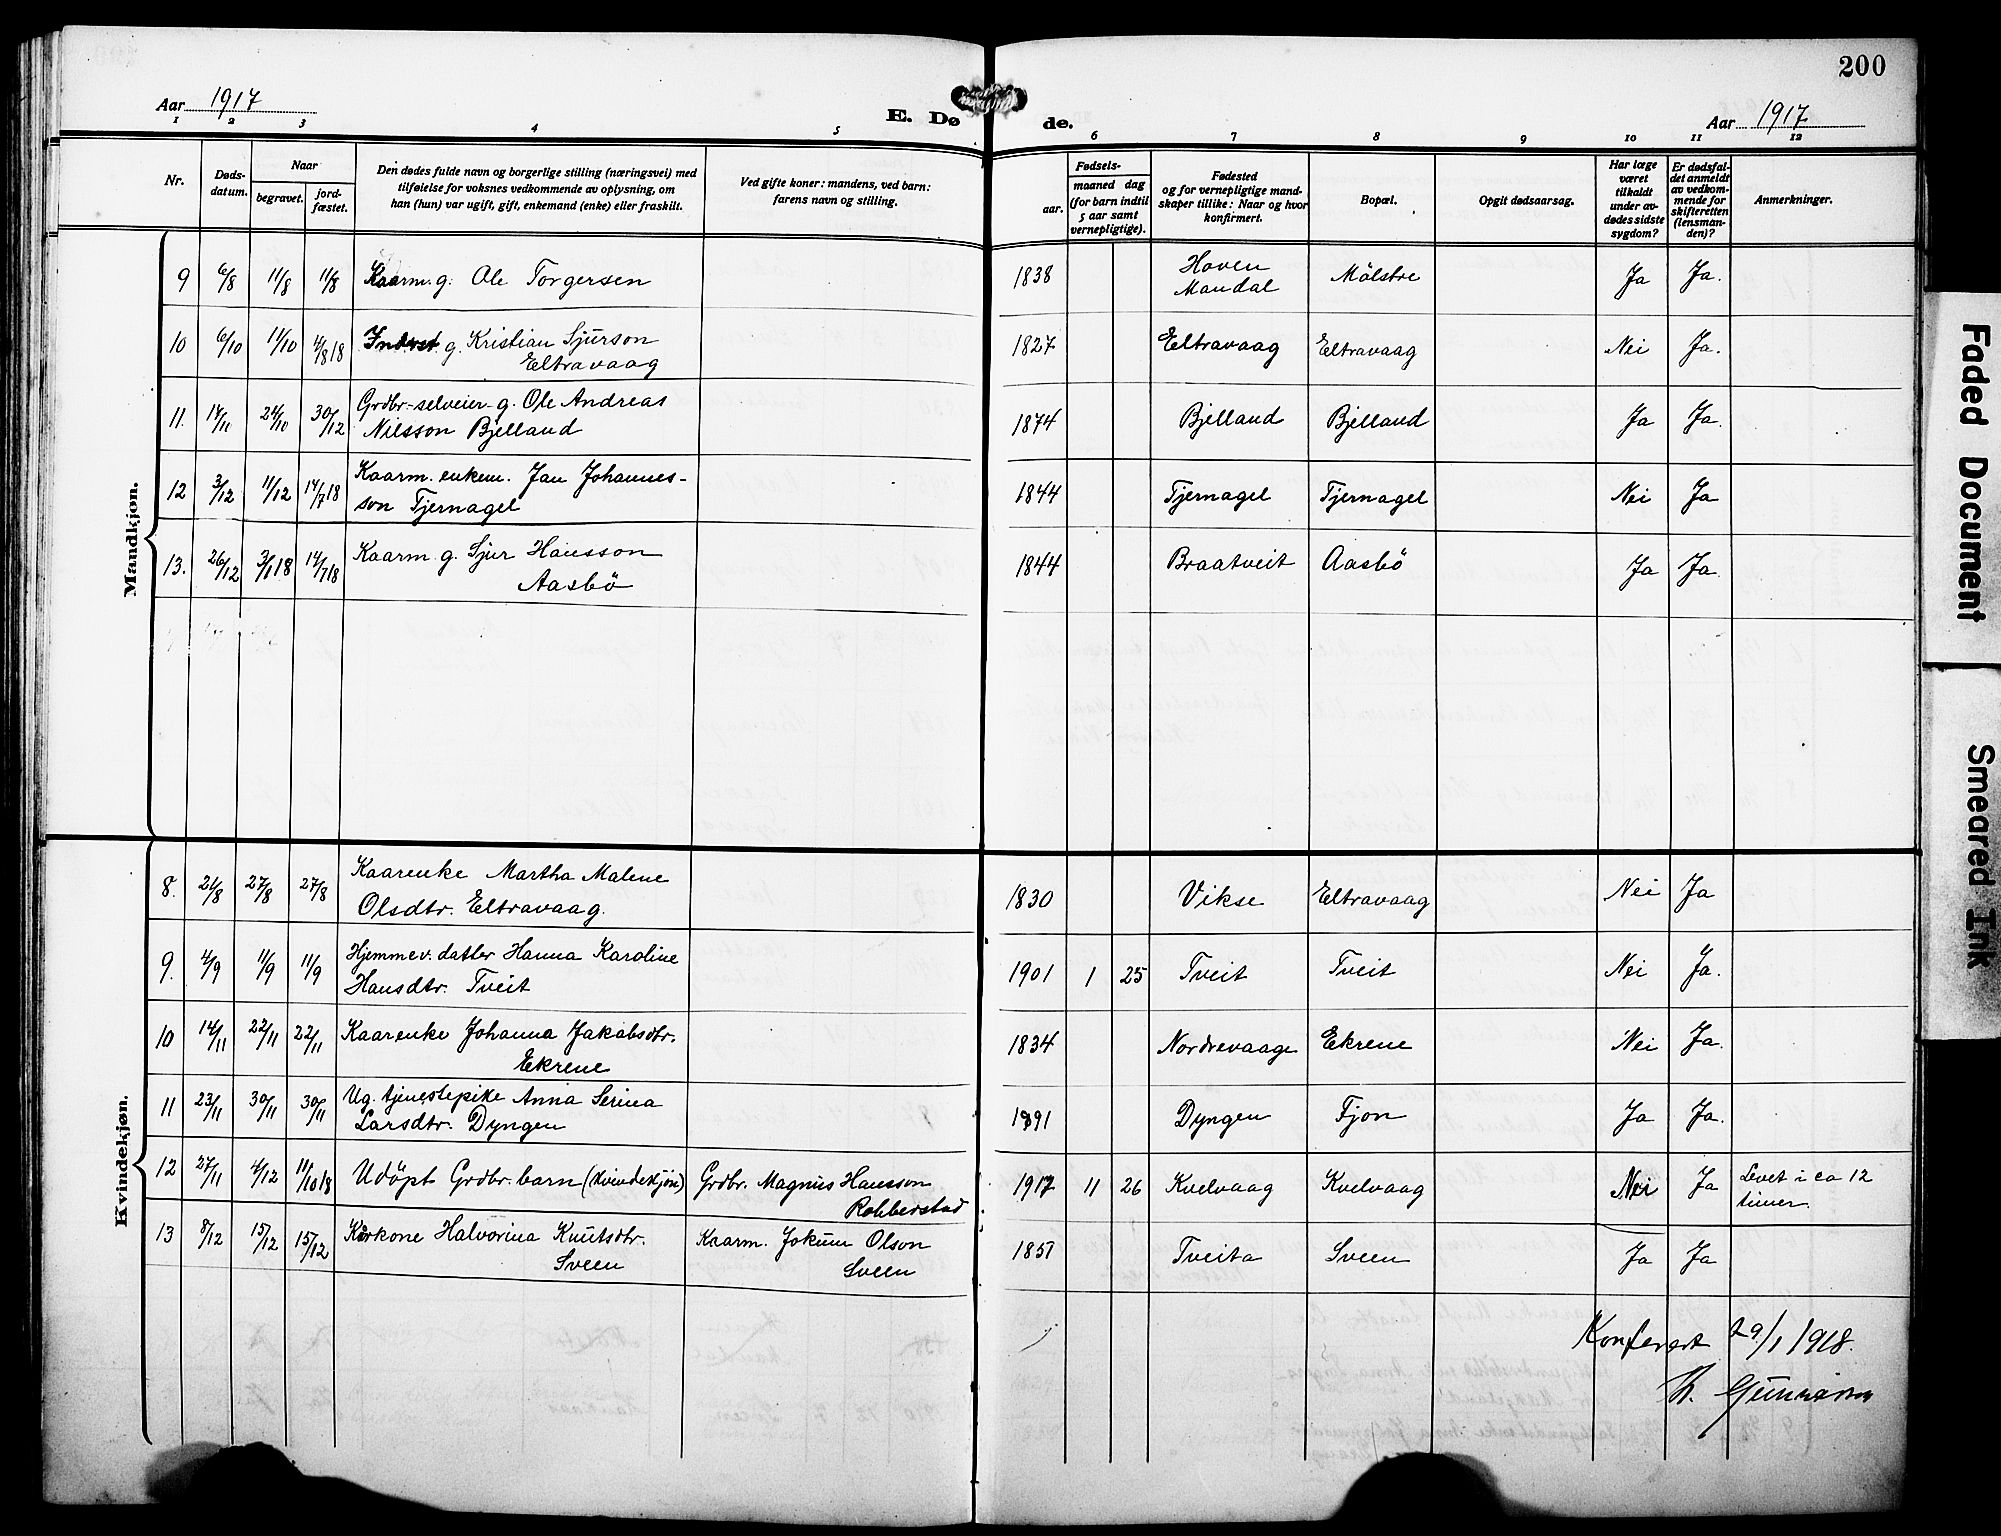 200
Aar 1917
E. Dø
de.
Aar 1917
1 2 3 4 5 6 7 8 9 10 11 12
Nr.
Døds-
datum.
Naar
begravet.
jord-
fæstet.
Den dødes fulde navn og borgerlige stilling (næringsvei) med
tilføielse for voksnes vedkommende av oplysning, om
han (hun) var ugift, gift, enkemand (enke) eller fraskilt.
Ved gifte koner: mandens, ved barn:
farens navn og stilling.
Fødsels-
aar.
maaned dag
(for barn indtil
5 aar samt
vernepligtige).
Fødested
og for vernepligtige mand-
skaper tillike: Naar og hvor
konfirmert.
Bopæl.
Opgit dødsaarsag.
Har læge
været
tilkaldt
under av-
dødes sidste
sygdom?
Er dødsfal-
det anmeldt
av vedkom-
mende for
skifteretten
(lensman-
den)?
Anmerkninger.
Mandkjøn.
9 6/8 11/8 11/8 Kaarm. g. Ole Torgersen 1838 Hoven
Mandal Mölstre Ja Ja.
10 6/10 11/10 4/8 18 Inderst g. Kristian Sjurson
Eltravaag 1827 Eeltravaag Eeltravaag Nei Ja.
11. 14/10 24/10 30/12 Grdbr-selveier-g. Ole Andreas
Nilsson Bjelland 1874 Bjelland Bjelland Ja Ja.
12 3/12 11/12 14/7 18 Kaarm. enkem. Jan Johannes-
son Tjernagel 1844 Tjernagel Tjernagel Nei Ja
13. 26/12 3/1 18 14/7 18 Kaarm g. Sjur Hansson
Aasbö 1844 Braatveit Aasbö Ja Ja.
Kvindekjøn.
8. 21/8 27/8 27/8 Kaarenke Martha Malene
Olsdtr. Eltravaag. 1830 Vikse Eeltravaag Nei Ja
9. 4/9 11/9 11/9 Hjemmev. datter Hanna Karoline
Hansdtr. Tveit 1901 1 25 Tveit Tveit Nei Ja.
10 14/11 22/11 22/11 Kaarenke Johanna Jakobsdtr.
Ekrene 1834 Nordrevaage Ekrene Nei Ja.
11 23/11 30/11 30/11 Ug. tjenestepike Anna Serina
Larsdtr. Dyngen 1891 Dyngen Fjon Ja Ja.
12 27/11 4/12 11/10 18 Udöpt Grdbr. barn (kvindekjön) Grdbr. Magnus Hansson
Robberstad 1917 11 26 Kvelvaag Kvelvaag Nei Ja Levet i ca 12
timer.
13 8/12 15/12 15/12 Karkone Halvorina Knutsdtr.
Sveen Kaarm. Jokum Olson
Sveen 1857 Tveita Sveen Ja Ja
Konferert 29/1 1918.
Faded Document
Smeared Ink